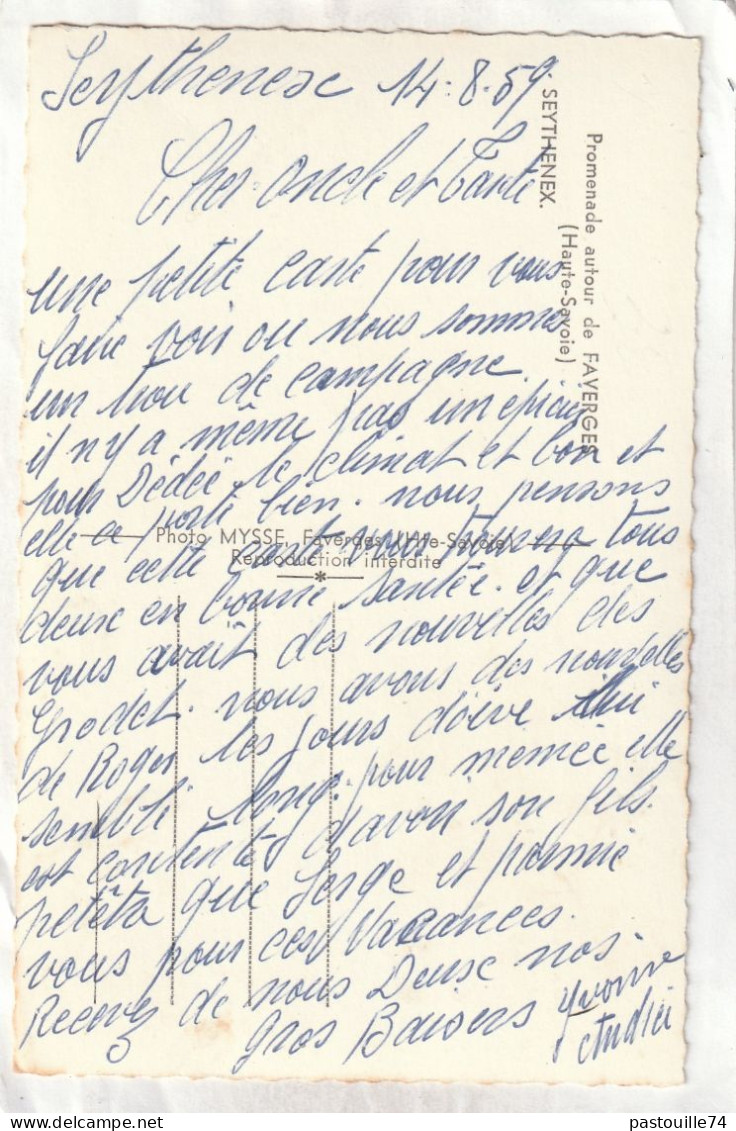 Seythenex 14-8-59
Cher Oncle et Tante
une petite carte pour vous
faire voir ou nous sommes
un trou de campagne
il n'y a même pas un épicier
pour Dédée le climat et bon et
elle ce porte bien. nous pensons
que cette carte vous tous
deux en bonne santée. et que
vous avait des nouvelles des
Grodet. nous avons des nouvelles
de Roger les jours doive lui
semblé long. pour memée elle
est contente d'avoir son fils.
petêtre que Serge et parmie
vous pour ces Vacances.
Recevez de nous Deux nos
Gros Baisers Yvonne
et
Promenade autour de FAVERGES
(Haute-Savoie)
SEYTHENEX.
Photo MYSSE, Faverges (Hte-Savoie)
Reproduction interdite
pastouille74